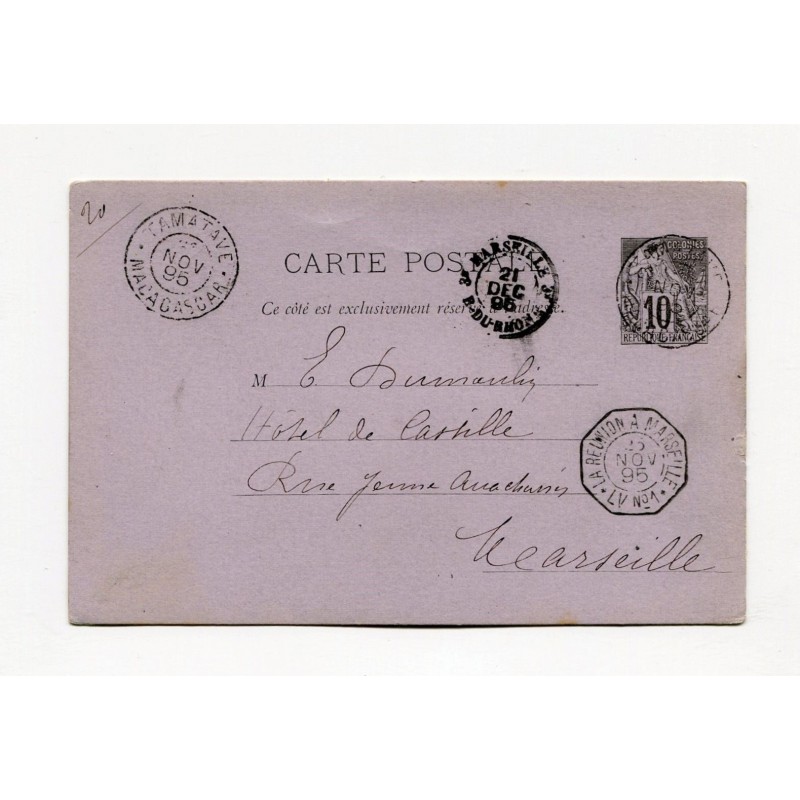 20
TAMATAVE
NOV
95
MADAGASCAR
CARTE POSTALE
MARSEILLE
21
DEC
95
B. DU-RHONE
COLONIES
POSTES
10
REPUBLIQUE FRANÇAISE
Ce côté est exclusivement réservé à l'adresse.
M E Dumoulin
Hôtel de Castille
Rue Jeune Anacharsis
LA REUNION A MARSEILLE
NOV
95
LV No1
Marseille